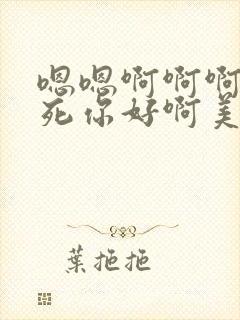 嗯嗯啊啊啊
死你好啊美
葉拖拖